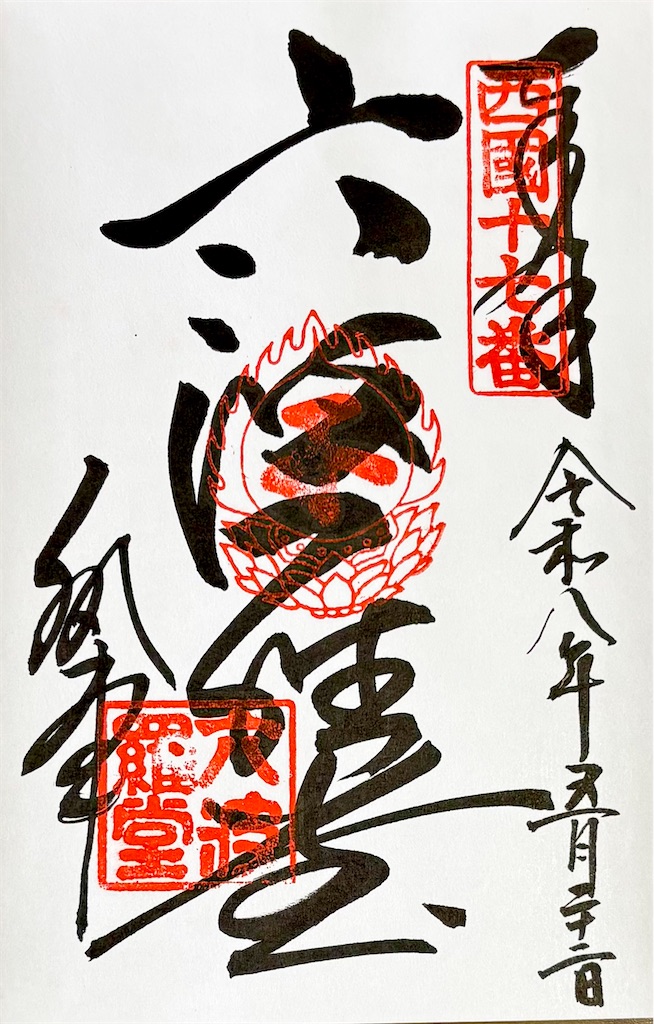 奉拝
西國十七番
令和八年五月二十二日
六波羅堂
六波羅堂